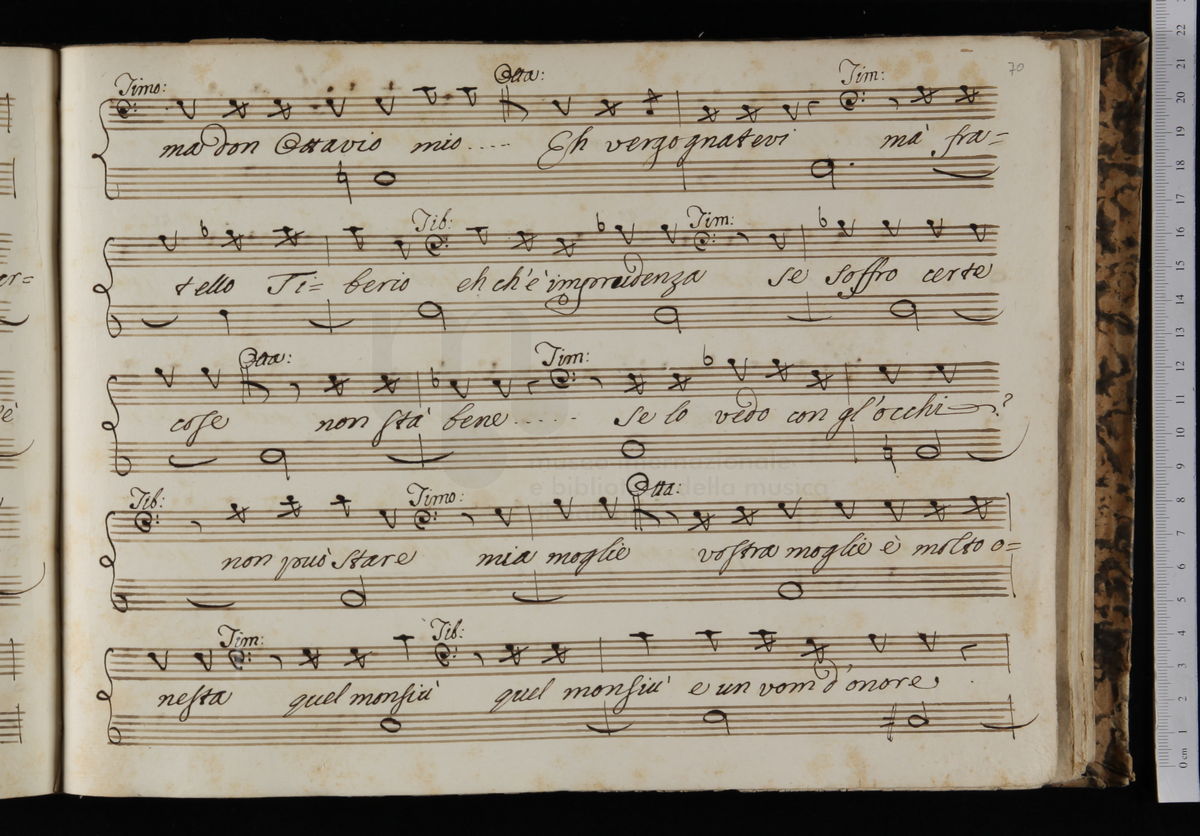 70
Timo: Otta: Tim:
ma don Ottavio mio..... Eh vergognatevi mà fra=
Tib: Tim:
tello Ti= berio eh ch'è imprudenza se soffro certe
Otta: Tim:
cose non stà bene..... se lo vedo con gl'occhi ?
museo internazionale
e biblioteca della musica
Tib: Timo: Otta:
non può stare mia moglie vostra moglie è molto o=
Tim: Tib:
nesta quel monsiù quel monsiù e un vom d'onore
22 21 20 19 18 17 16 15 14 13 12 11 10 9 8 7 6 5 4 3 2 1 0 cm